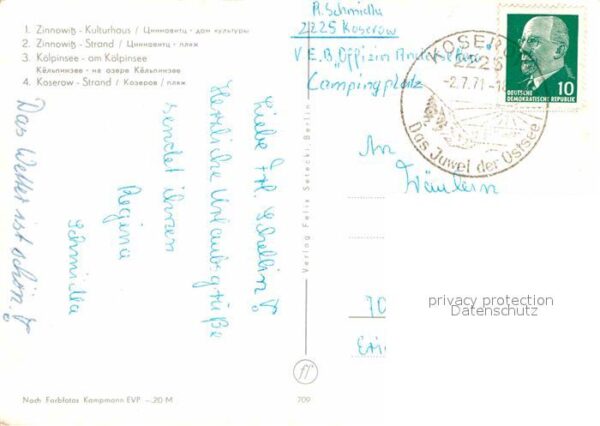 1. Zinnowitz - Kulturhaus / Цинновитц - дом культуры
2. Zinnowitz - Strand / Цинновитц - пляж
3. Kölpinsee - am Kölpinsee
Кёльпинзее - на озере Кёльпинзее
4. Koserow - Strand / Козеров / пляж
Liebe Frl. Schellin!
Herzliche Urlaubsgrüße
sendet ihnen
Regina
Schmidla
Das Wetter ist schön!
Nach Farbfotos Kampmann EVP -.20 M
709
Verlag Felix Setecki, Berlin
R. Schmidla
2225 Koserow
V E B "Offizin Andersen
Campingplatz
KOSEROW
2225
-2.7.71-1
Das Juwel der Ostsee
DEUTSCHE
DEMOKRATISCHE REPUBLIK
10
An
Fräulein
70
privacy protection
Datenschutz